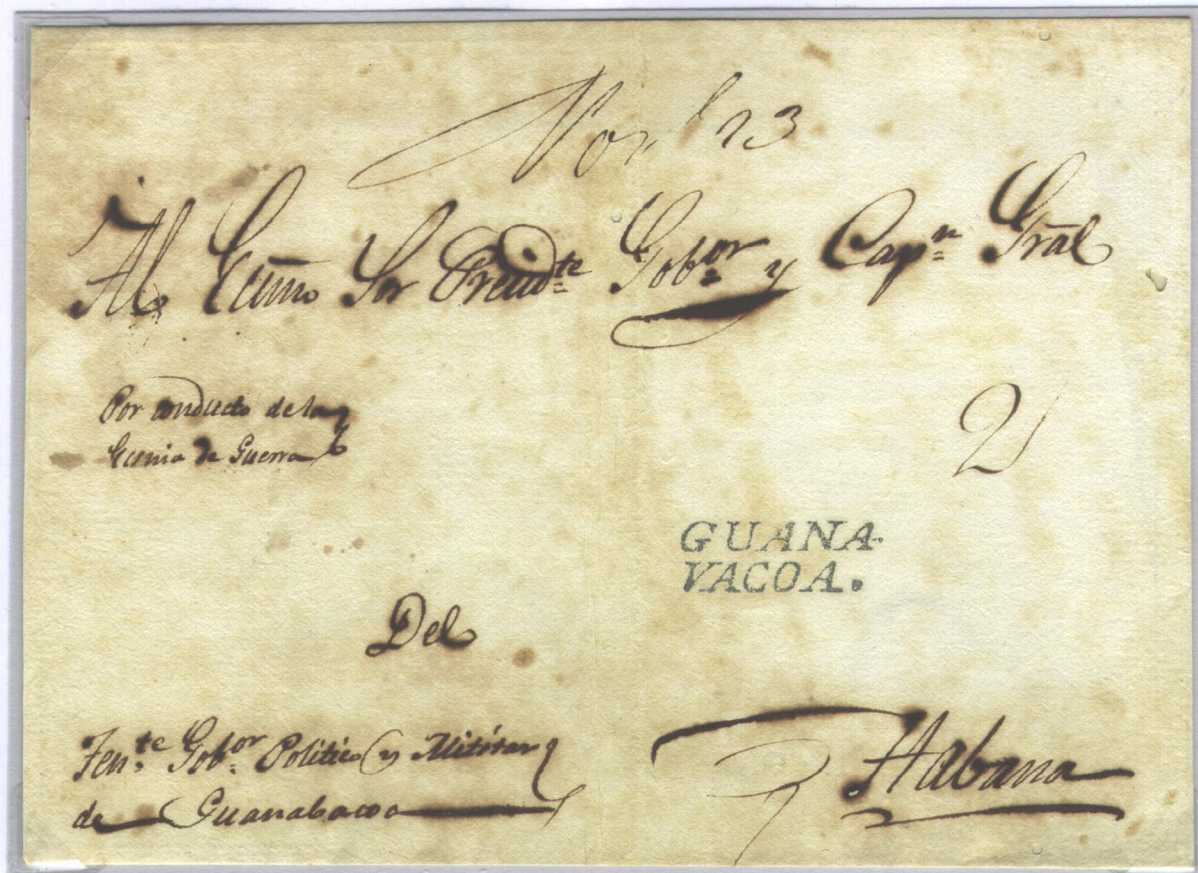 Nov.e 23
Al Exmo Sor Presid.te Gob.or y Cap.n Gral
Por conducto de la
Escnia de Guerra
2
GUANA-
VACOA.
Del
Ten.te Gob.or Politico y Militar
de Guanabacoa
Habana